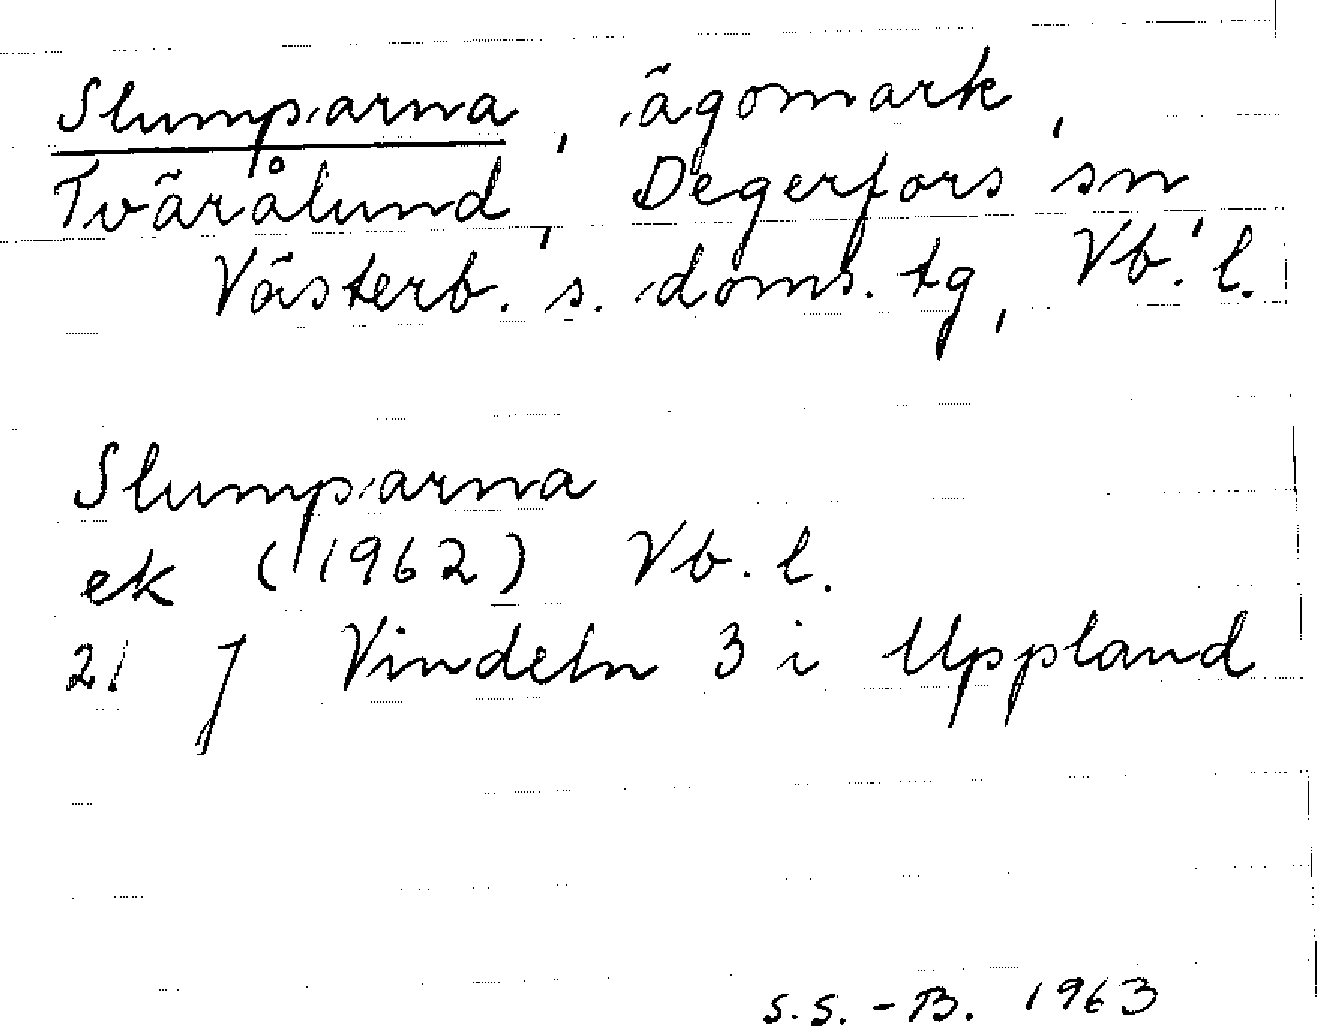 Slumparna, ägomark,
Tvärålund, Degerfors sn,
Västerb. s. doms. tg, Vb. l.
Slumparna
ek (1962) Vb. l.
21 J Vindeln 3 i Uppland
S.S.-B. 1963